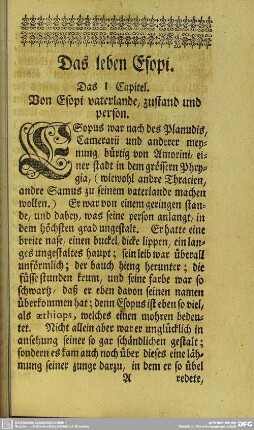 Das leben Esopi.
Das I Capitel.
Von Esopi vaterlande, zustand und
person.
ESopus war nach des Planudis,
Camerarii und anderer mey-
nung bürtig von Amorini ei-
ner stadt in dem grössern Phry-
gia, (wiewohl andre Thracien,
andre Samus zu seinem vaterlande machen
wollen.) Er war von einem geringen stan-
de, und dabey, was seine person anlangt, in
dem höchsten grad ungestalt. Er hatte eine
breite nase, einen buckel, dicke lippen, ein lan-
ges ungestaltes haupt; sein leib war überall
unförmlich; der bauch hieng herunter; die
füsse stunden krum, und seine farbe war so
schwartz, daß er eben davon seinen namen
überkommen hat; denn Esopus ist eben so viel,
als æthiops, welches einen mohren bedeu-
tet. Nicht allein aber war er unglücklich in
ansehung seiner so gar schändlichen gestalt;
sondern es kam auch noch über dieses eine läh-
mung seiner zunge darzu, in dem er so übel
A redete,
DFG